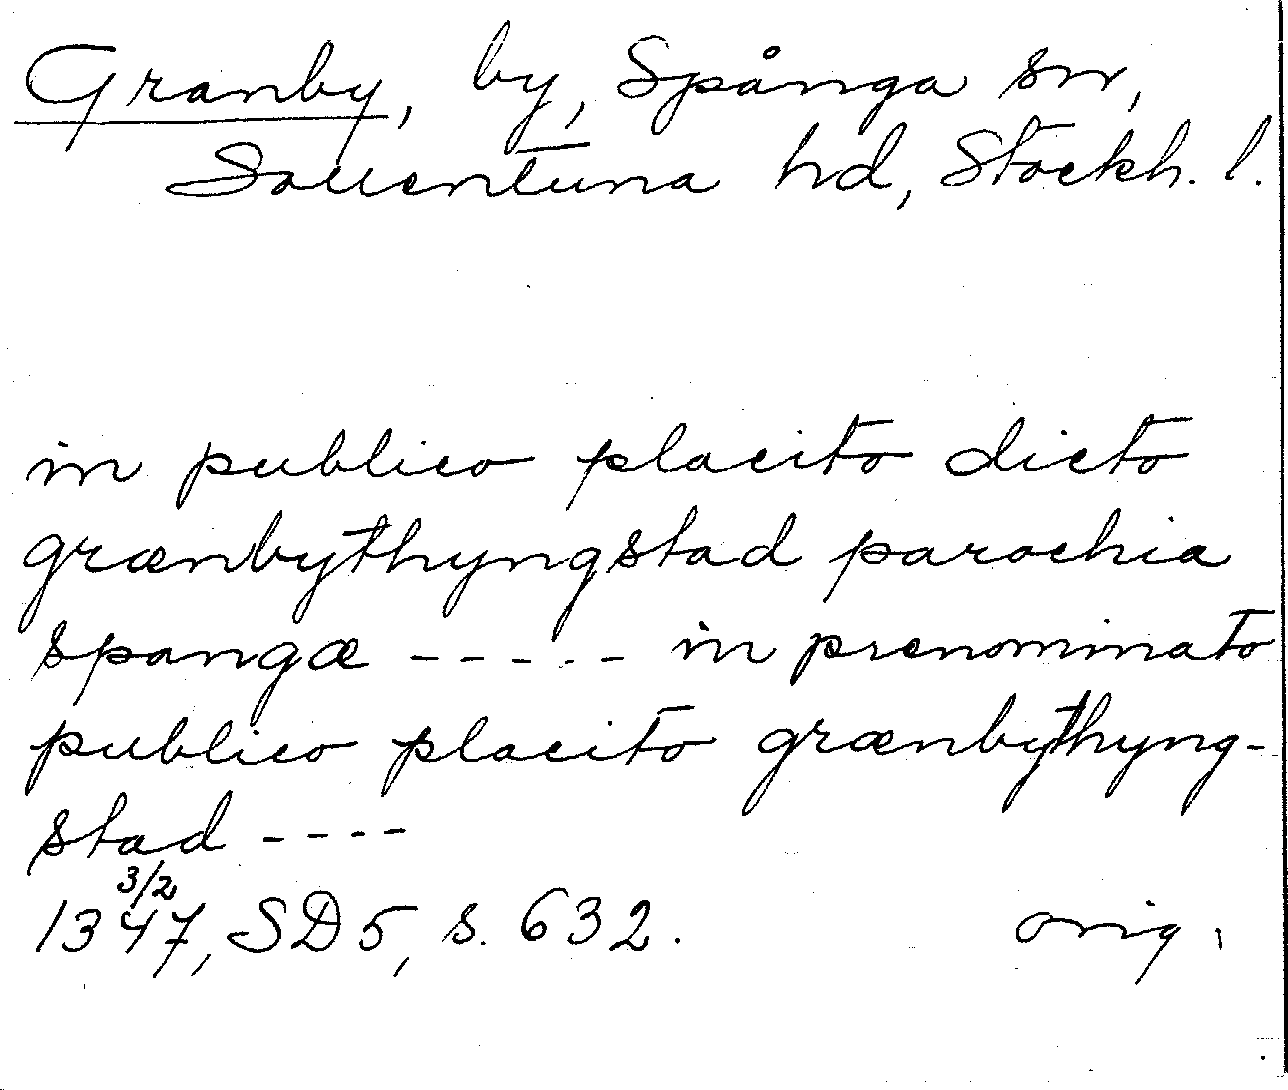 Granby, by, Spånga sn,
Sollentuna hd, Stockh. l.
in publico placito dicto
grænbythyngstad parochia
spangæ ----- in prenominato
publico placito grænbythyng-
stad ----
3/2
1347, SD 5, s. 632. orig.